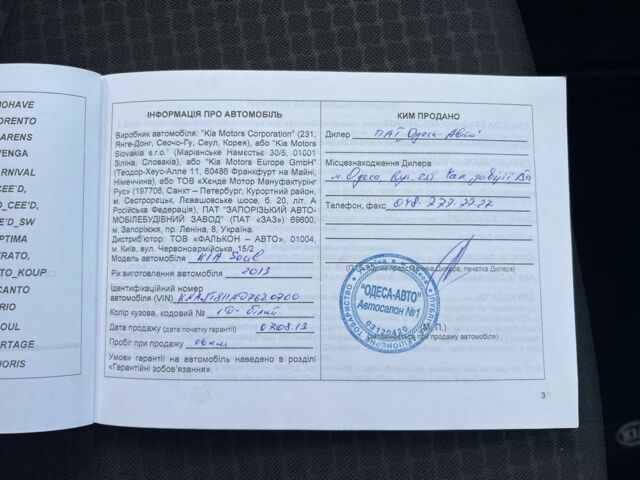 MOHAVE
ORENTO
ARENS
VENGA
ARNIVAL
CEE'D,
O_CEE'D,
E'D_SW
PTIMA
TRATO,
TO_KOUP
CANTO
RIO
OUL
RTAGE
HORIS
ІНФОРМАЦІЯ ПРО АВТОМОБІЛЬ
Виробник автомобіля: "Kia Motors Corporation" (231,
Янге-Донг, Сеочо-Гу, Сеул, Корея), або "Kia Motors
Slovakia s.r.o." (Маріанське Намєстьє 30/5, 01001
Зіліна, Словакія), або "Kia Motors Europe GmbH"
(Теодор-Хеус-Алле 11, 60486 Франкфурт на Майні,
Німеччина), або ТОВ «Хенде Мотор Мануфактуринг
Рус» (197706, Санкт – Петербург, Курортний район,
м. Сестрорецьк, Левашовське шосе, б. 20, літ. А
Російська Федерація), ПАТ "ЗАПОРІЗЬКИЙ АВТО-
МОБІЛЕБУДІВНИЙ ЗАВОД" (ПАТ «ЗАЗ») 69600,
м. Запоріжжя, пр. Леніна, 8, Україна.
Дистриб'ютор: ТОВ «ФАЛЬКОН – АВТО», 01004,
м. Київ, вул. Червоноармійська, 15/2
Модель автомобіля KIA Soul
Рік виготовлення автомобіля 2013
Ідентифікаційний номер
автомобіля (VIN)
Колір кузова, кодовий № 1D - білий
Дату продажу (дата початку гарантії) 07.08.13
Пробіг при продажу 06 км
Умови гарантії на автомобіль наведено в розділі
«Гарантійні зобов'язання».
КИМ ПРОДАНО
Дилер ПАТ "Одеса-Авто"
Місцезнаходження Дилера
м. Одеса, вул.
Телефон, факс 048-777-22-27
Дилера, печатка Дилера)
Україна
ТОВАРИСТВО
"ОДЕСА-АВТО"
Автосалон №1
03120420
(М. П.)
при продажу автомобіля)
3
KIA